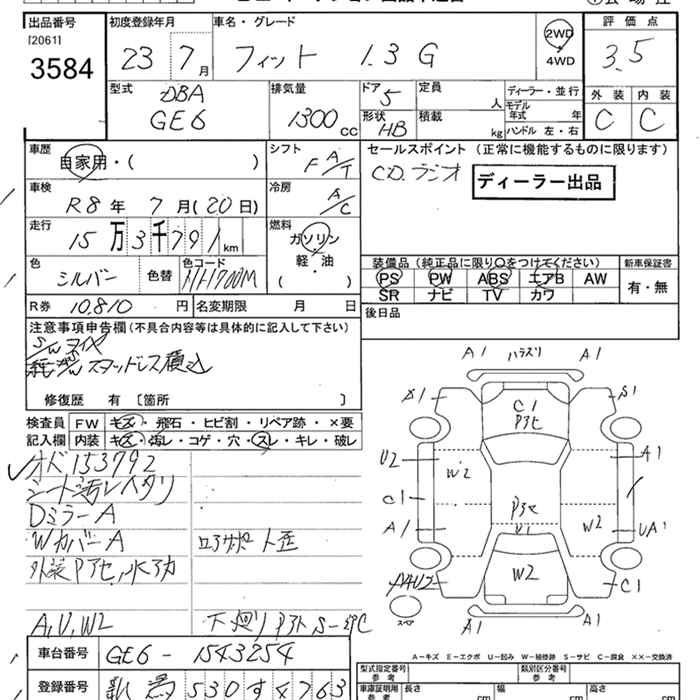 出品番号
[2061]
3584
初度登録年月
23 7 月
車名・グレード
フィット 1.3 G
2WD
4WD
評価点
3.5
型式
DBA
GE6
排気量
1300 cc
ドア 5
形状 HB
定員 人
積載 kg
ディーラー・並行
モデル年式 年
ハンドル 左・右
外装 内装
C C
車歴
自家用・( )
シフト
F A/T
セールスポイント (正常に機能するものに限ります)
CD.ラジオ
ディーラー出品
車検
R8年 7月(20日)
冷房
A/C
走行
15万3千791km
燃料
ガソリン
軽・油
( )
色
シルバー
色替
色コード
NH700M
装備品(純正品に限り〇をつけてください)
PS PW ABS エアB AW
SR ナビ TV カワ
新車保証書
有・無
R券 10.810 円
名変期限 月 日
後日品
注意事項申告欄(不具合内容等は具体的に記入して下さい)
S/Wタイヤ
スタッドレス積込
修復歴 有 [箇所 ]
検査員
記入欄
FW キズ・飛石・ヒビ割・リペア跡・×要
内装 キズ・汚レ・コゲ・穴・スレ・キレ・破レ
オド153792
シート汚レヘタリ
DミラーA
WカバーA
外装Pアセ,水アカ
A,U,W2
下廻り
A1 A1
C1
Pアセ
S1
U2
W2
A1
C1
Pアセ
A1
U1
W2
UA1
W2
C1
A1 A1
スペア
A－キズ E－エクボ U－凹み W－補修跡 S－サビ C－腐食 ××－交換済
車台番号
GE6 - 1543254
登録番号
530 す 4763
型式指定番号
参考
類別区分番号
参考
車庫証明用
参考
長さ cm
幅 cm
高さ cm